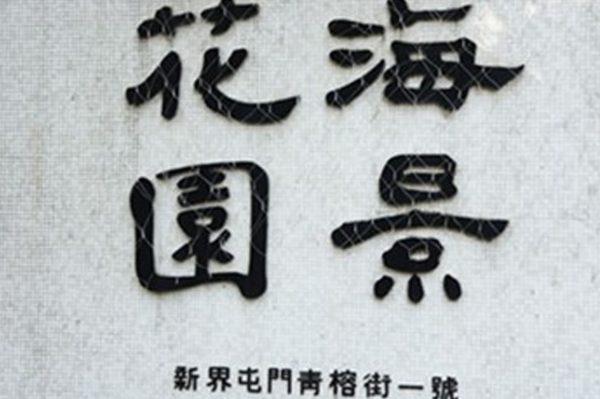 海景
花園
新界屯門青榕街一號